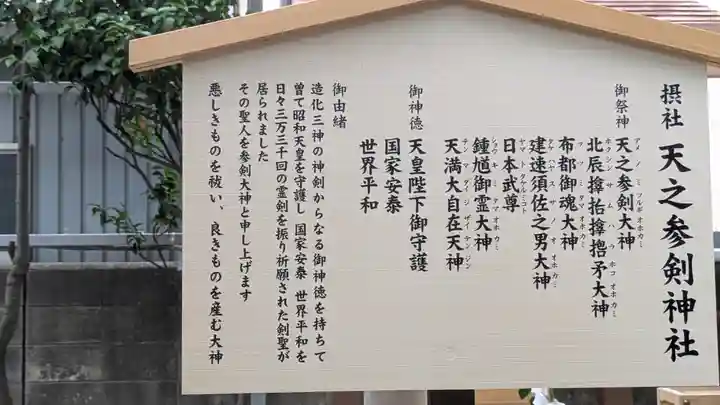 摂社 天之参剣神社
御祭神 天之参剣大神
北辰 矛大神
布都御魂大神
建速須佐之男大神
日本武尊
鍾馗御霊大神
天満大自在天神
御神徳 天皇陛下御守護
国家安泰
世界平和
御由緒
造化三神の神剣からなる御神徳を持ちて
曽て昭和天皇を守護し 国家安泰 世界平和を
日々三万三千回の霊剣を振り祈願された剣聖が
居られました
その聖人を参剣大神と申し上げます
悪しきものを祓い、良きものを産む大神